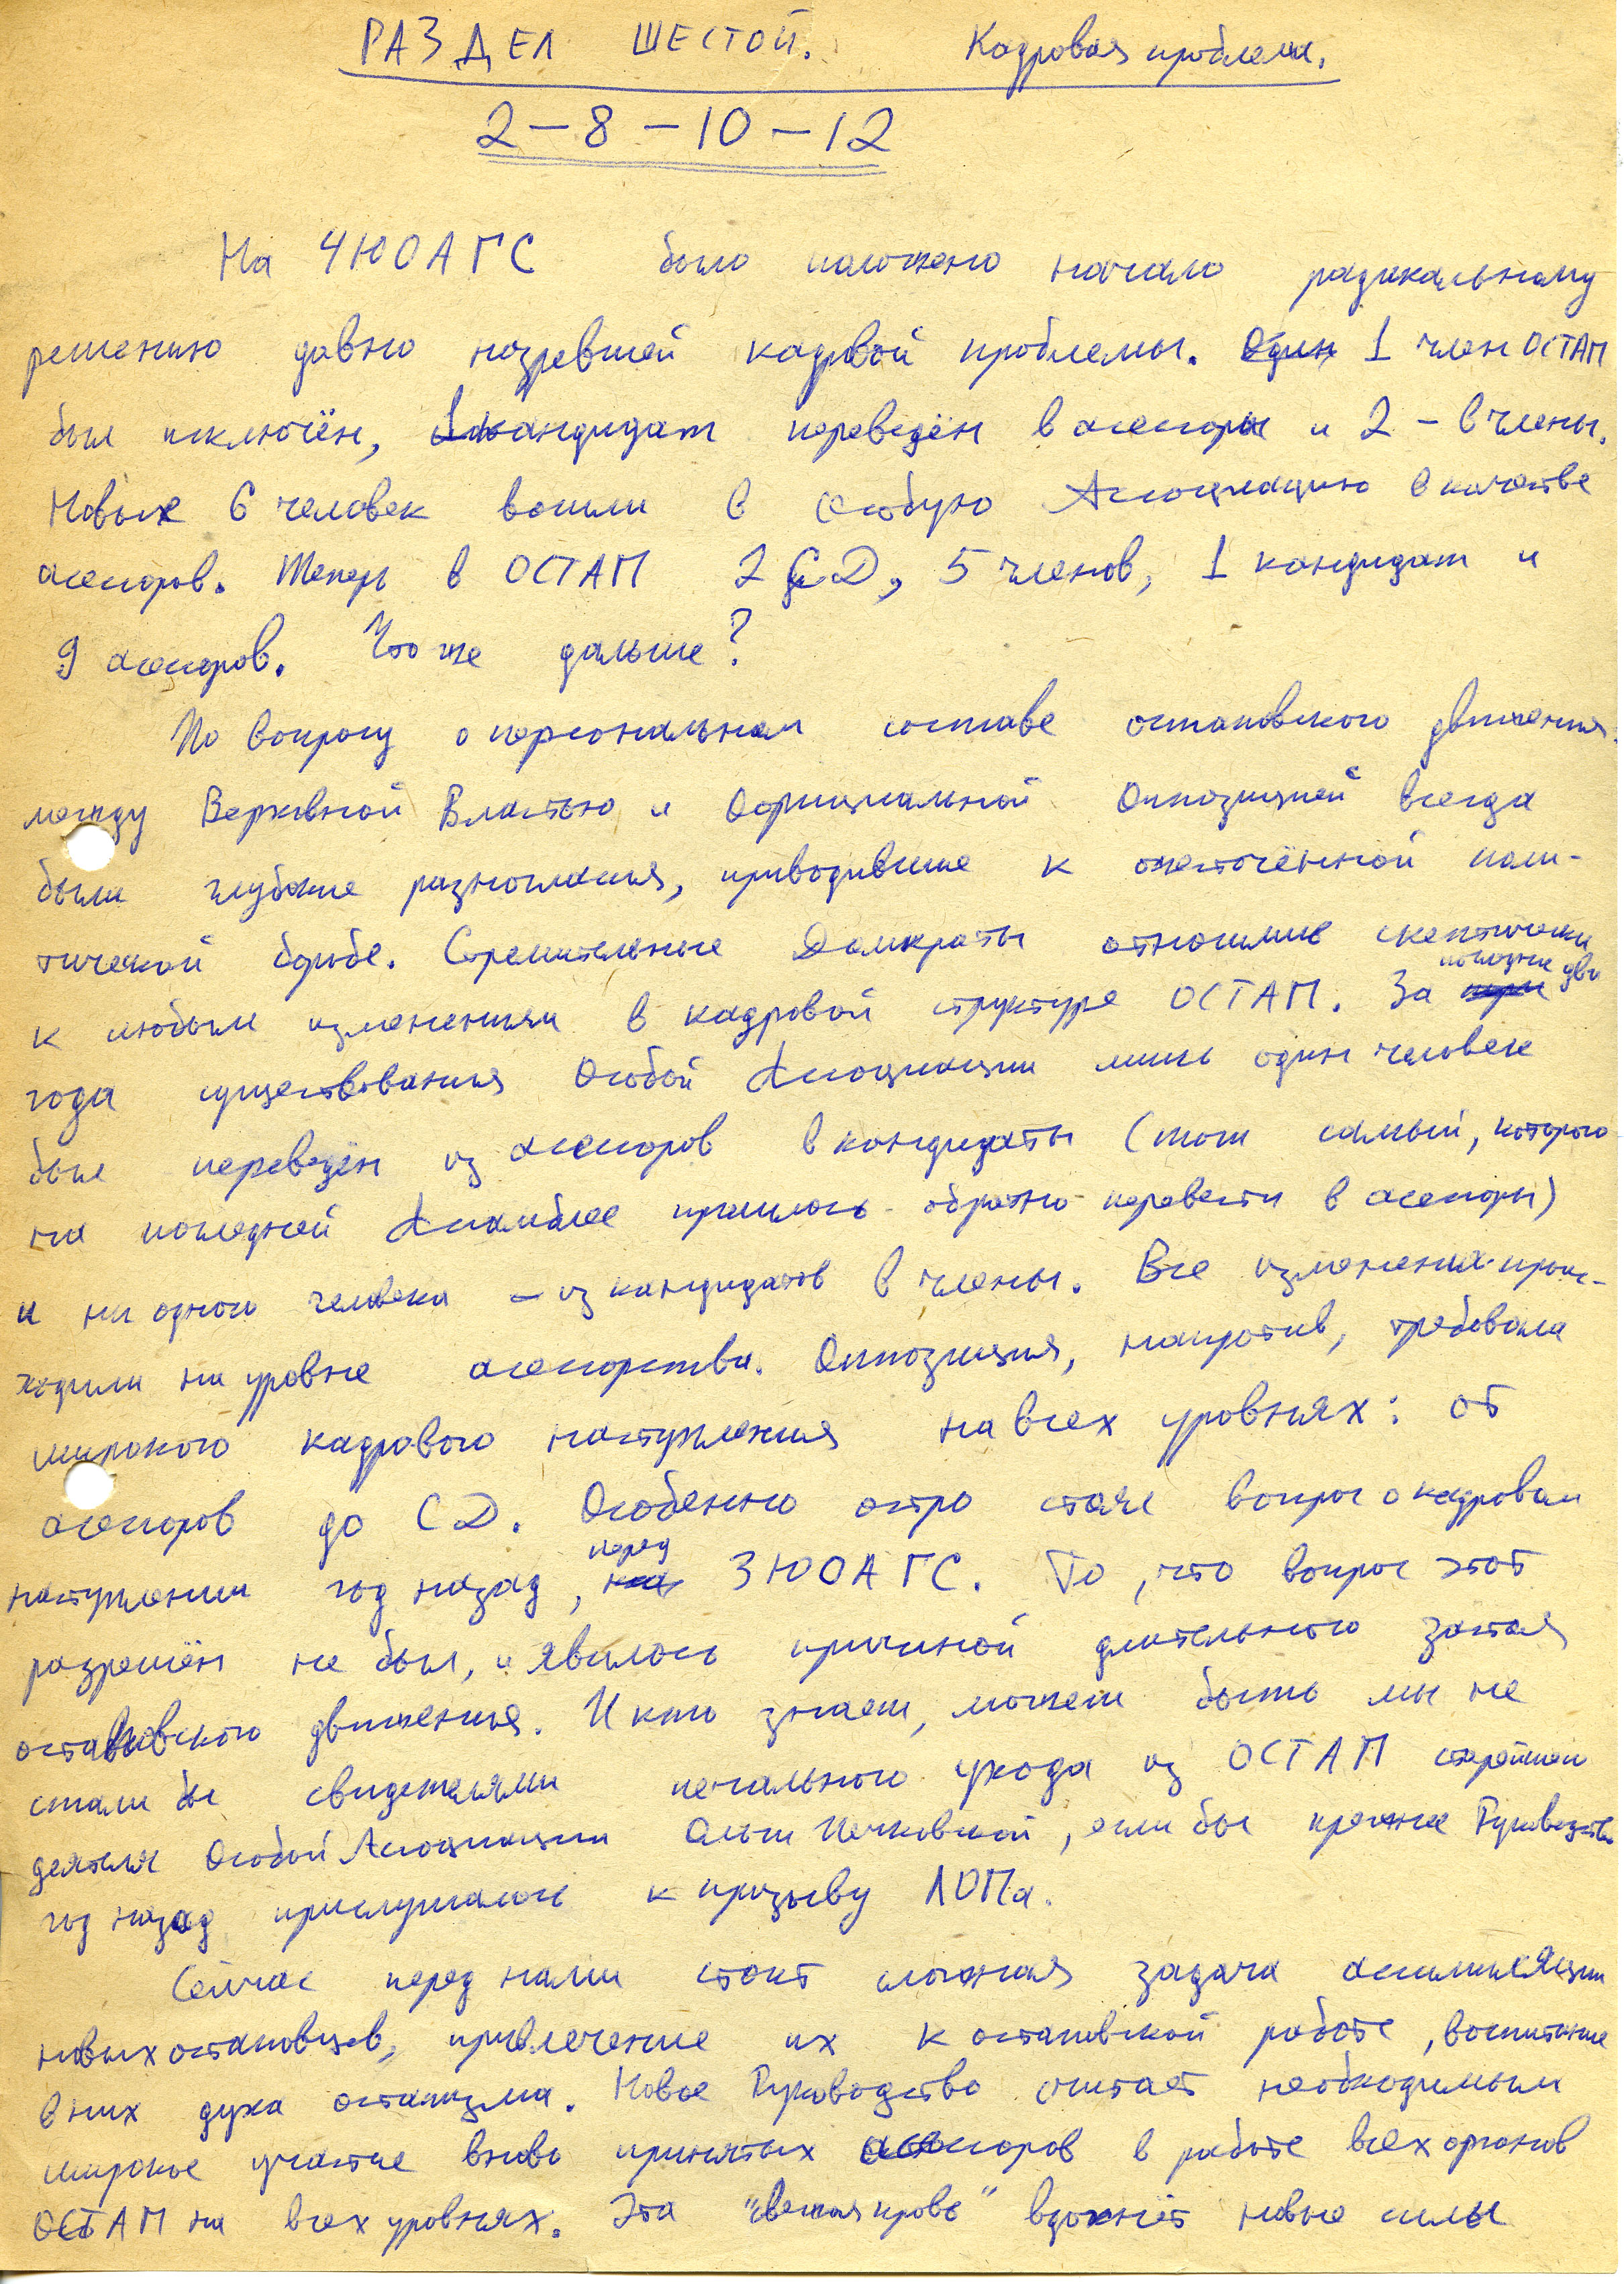 РАЗДЕЛ ШЕСТОЙ. Кадровая проблема.
2 – 8 – 10 – 12
На ЧЮОАГС было положено начало радикальному
решению давно назревшей кадровой проблемы. Один 1 член ОСТАП
был исключён, 1 кандидат переведён в асессоры и 2 – в члены.
Новых 6 человек вошли в Особую Ассоциацию в качестве
асессоров. Теперь в ОСТАП 2 СД, 5 членов, 1 кандидат и
9 асессоров. Что же дальше?
По вопросу о персональном составе остаповского движения
между Верховной Властью и Официальной Оппозицией всегда
были глубокие разногласия, приводившие к ожесточённой поли-
тической борьбе. Стремительные Домкраты относились скептически
к любым изменениям в кадровой структуре ОСТАП. За три последние два
года существования Особой Ассоциации лишь один человек
был переведён из асессоров в кандидаты (тот самый, которого
на последней Ассамблее пришлось обратно перевести в асессоры)
и ни одного человека – из кандидатов в члены. Все изменения проис-
ходили на уровне асессорства. Оппозиция, напротив, требовала
широкого кадрового наступления на всех уровнях: от
асессоров до СД. Особенно остро стоял вопрос о кадровом
наступлении год назад, на перед 3ЮОАГС. То, что вопрос этот
разрешён не был, и явилось причиной длительного застоя
остаповского движения. И кто знает, может быть мы не
стали бы свидетелями печального ухода из ОСТАП старейшего
деятеля Особой Ассоциации Ольги Печковской, если бы прежнее Руководство
год назад прислушалось к призыву ЛОПа.
Сейчас перед нами стоит сложная задача ассимиляции
новых остаповцев, привлечение их к остаповской работе, воспитание
в них духа остапизма. Новое Руководство считает необходимым
широкое участие вновь принятых асессоров в работе всех органов
ОСТАП на всех уровнях. Эта "свежая кровь" вдохнёт новые силы